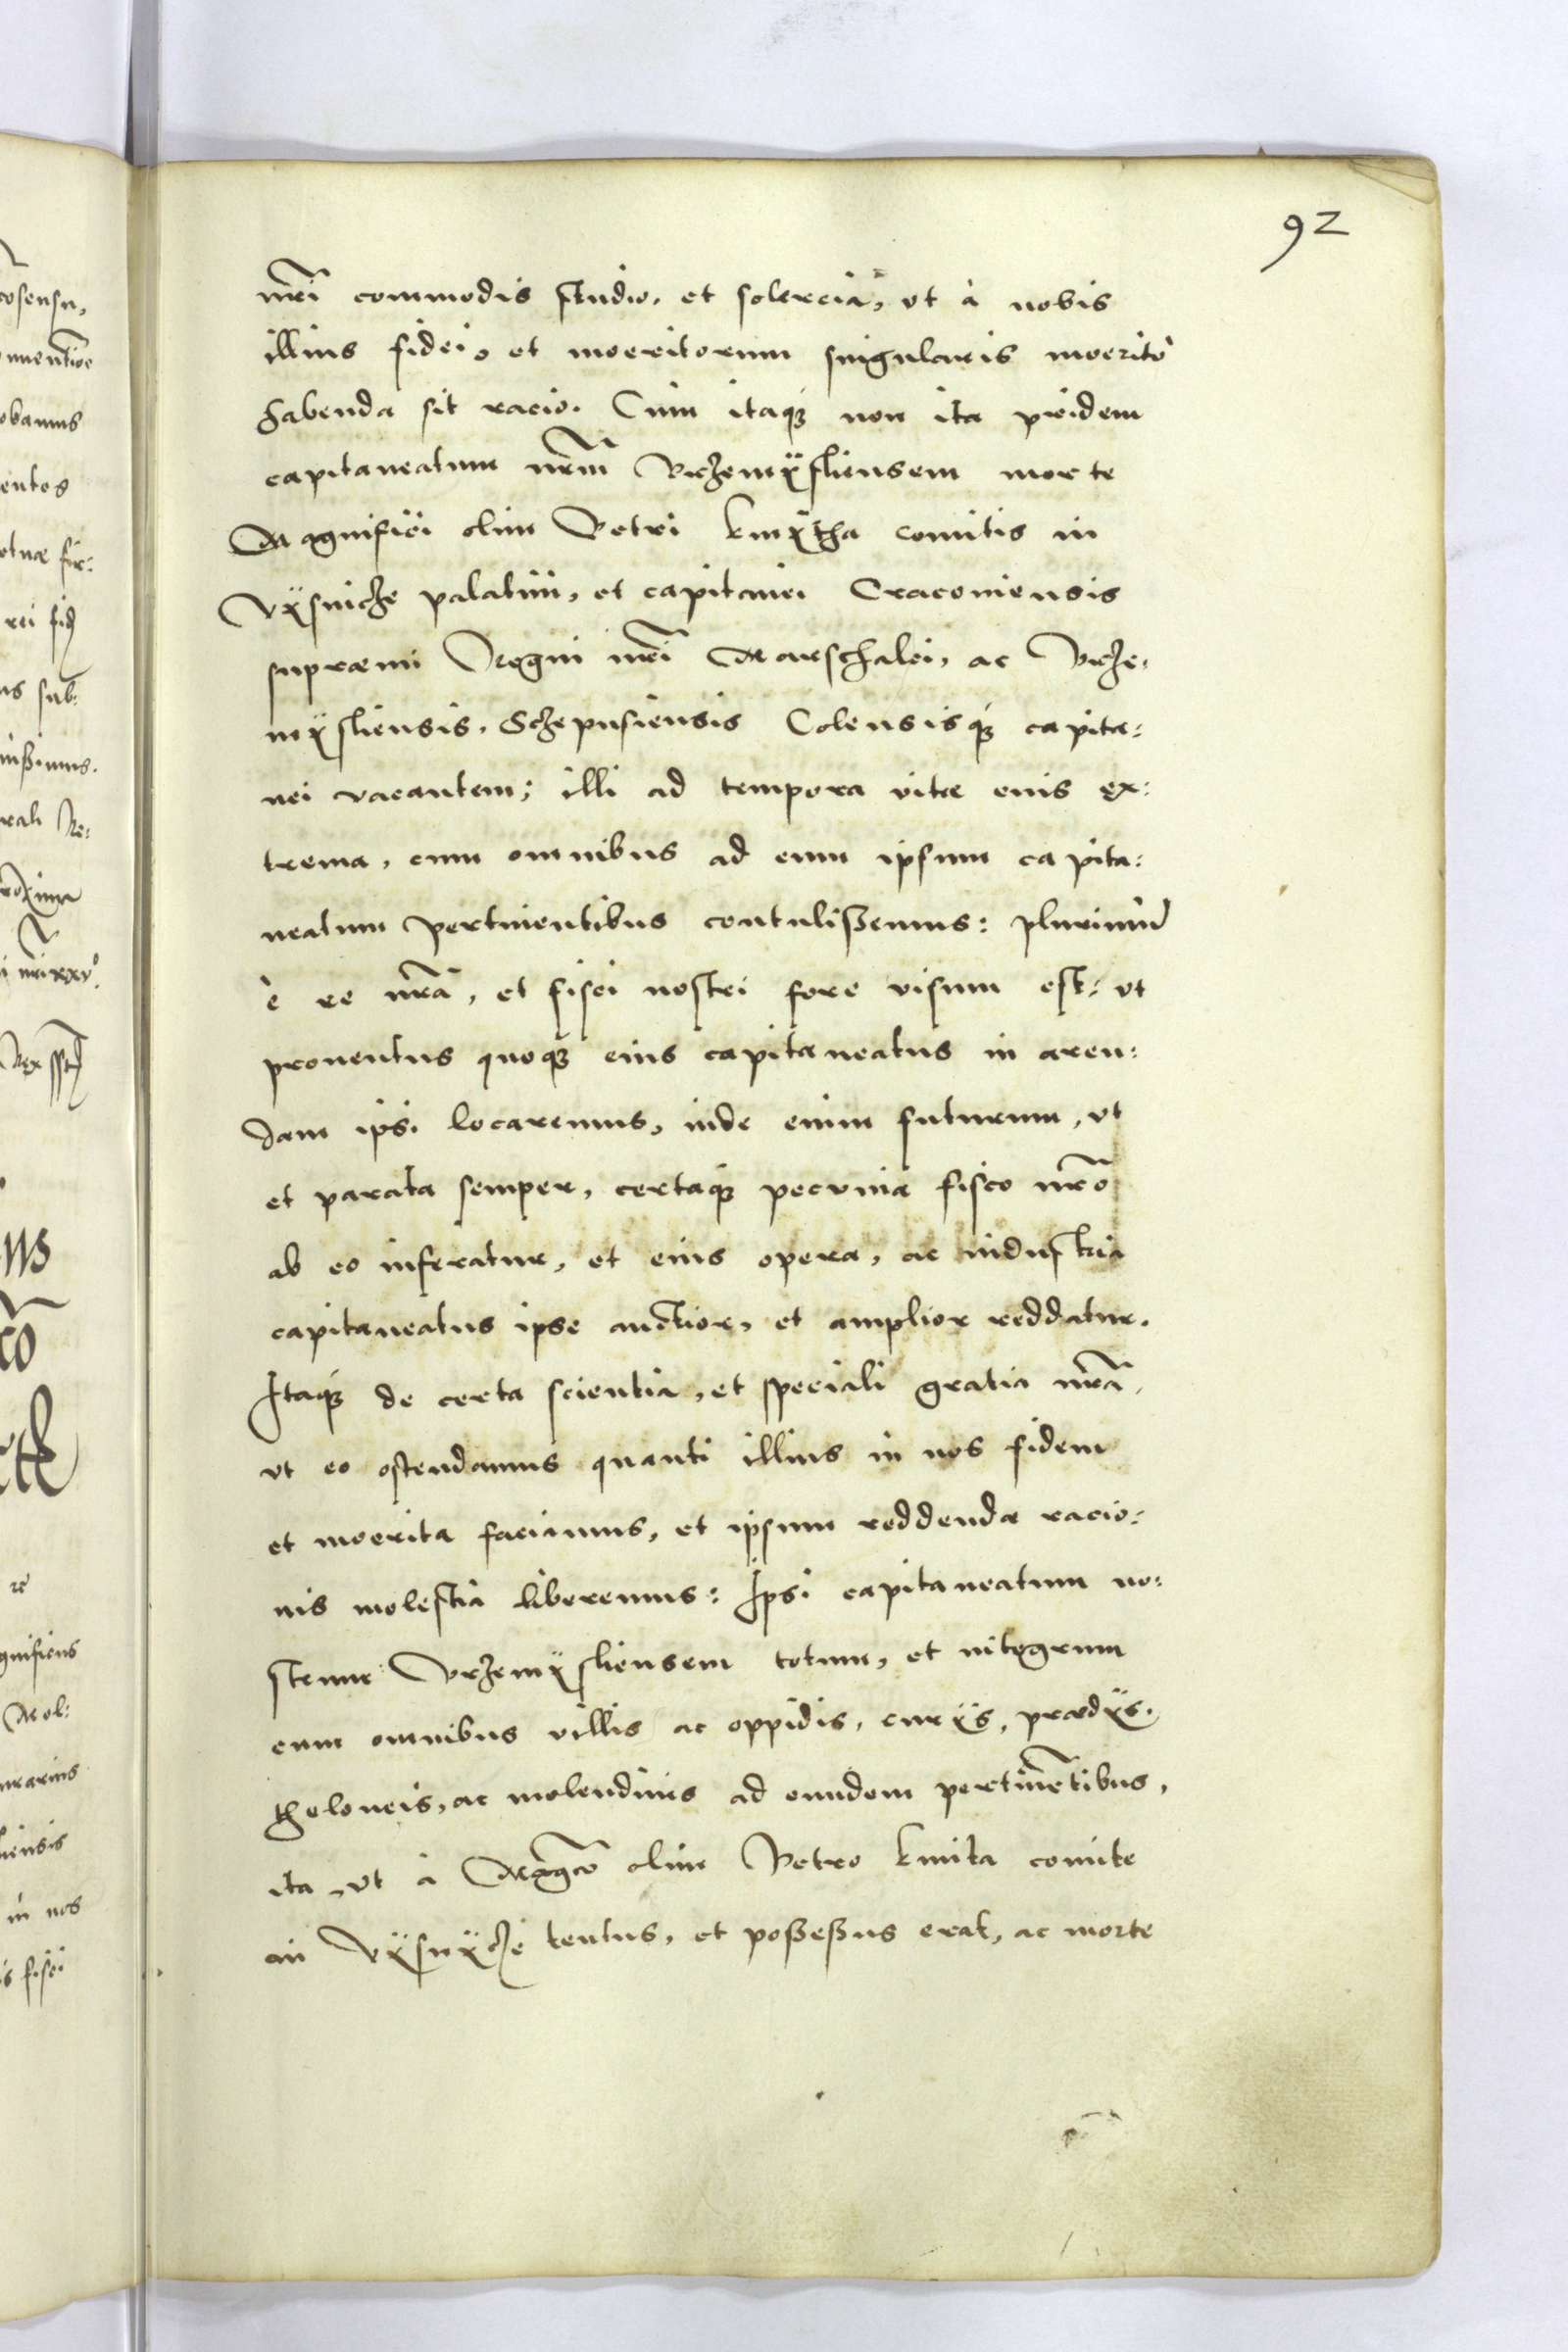 92
nr̄i commodis studio, et solercia, vt à nobis
illius fidei, et moeritorum singularis moeritò
habenda sit racio. Cùm itaq́ꝫ non ita pridem
capitaneatum nr̄m Przemÿsliensem morte
Magnifici olim Petri Kmÿtha Comitis in
Vÿsnicze palatini, et capitanei Cracouiensis
supræmi Regni nr̄i Marschalci, ac Prze:
mÿsliensis, Sczepusiensis Colensisq́ꝫ capita:
nei vacantem; illi ad tempora vitæ eius ex:
trema, cum omnibus ad eum ipsum capita:
neatum pertinentibus contulißemus: plurimũ
è re nr̄a, et fisci nostri fore visum est: vt
prouentus quoq́ꝫ eius capitaneatus in aren:
dam ipsi locaremus, inde enim futurum, vt
et parata semper, certaq́ꝫ pecunia fisco nr̄o
ab eo inferatur, et eius opera, ac industria
capitaneatus ipse auctior, et amplior reddatur.
Itaq́ꝫ de certa scientia, et speciali gratia nr̄a,
vt eo ostendamus quanti illius in nos fidem
et moerita faciamus, et ipsum reddendæ racio:
nis molestia liberemus: Ipsi capitaneatum no:
strum Przemÿsliensem totum, et integrum
cum omnibus villis ac oppidis, curÿs, prædÿs,
theloneis, ac molendinis ad eundem pertinẽtibus,
ita, vt à Mag̃co olim Petro Kmita comite
in Vÿsnÿcze tentus, et poßeßus erat, ac morte